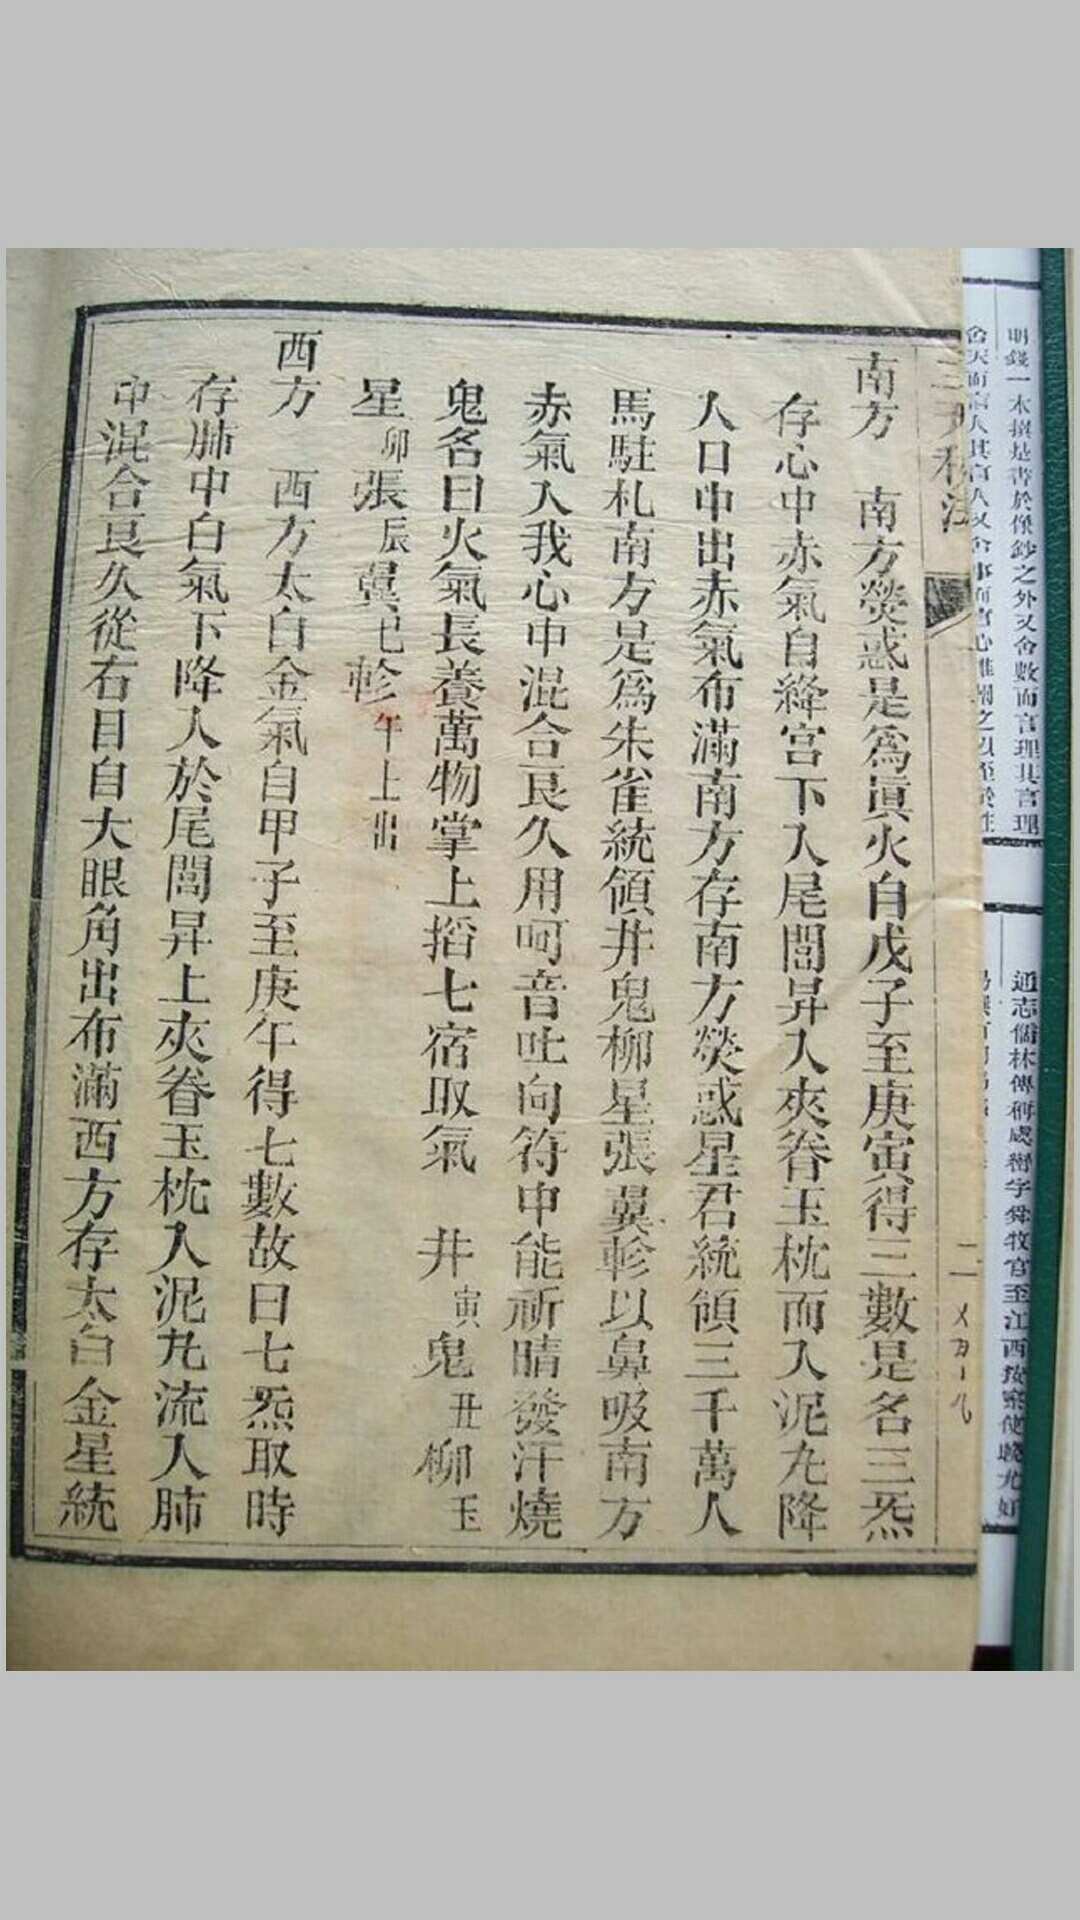 南方　南方熒惑是為眞火自戊子至庚寅得三數是名三炁
存心中赤氣自絳宮下入尾閭昇入夾脊玉枕而入泥丸降
人口中出赤氣布滿南方存南方熒惑星君統領三千萬人
馬駐札南方是為朱雀統領井鬼柳星張翼軫以鼻吸南方
赤氣入我心中混合良久用呵音吐向符中能祈晴發汗燒
鬼名曰火氣長養萬物掌上搯七宿取氣　井寅鬼丑柳玉
星卯張辰翼巳軫午上出
西方　西方太白金氣自甲子至庚午得七數故曰七炁取時
存肺中白氣下降人於尾閭昇上夾脊玉枕入泥丸流人肺
中混合良久從右目自大眼角出布滿西方存太白金星統
二
明錢一本撰是書於像鈔之外又舍數而言理其言理
通志儒林傳稱